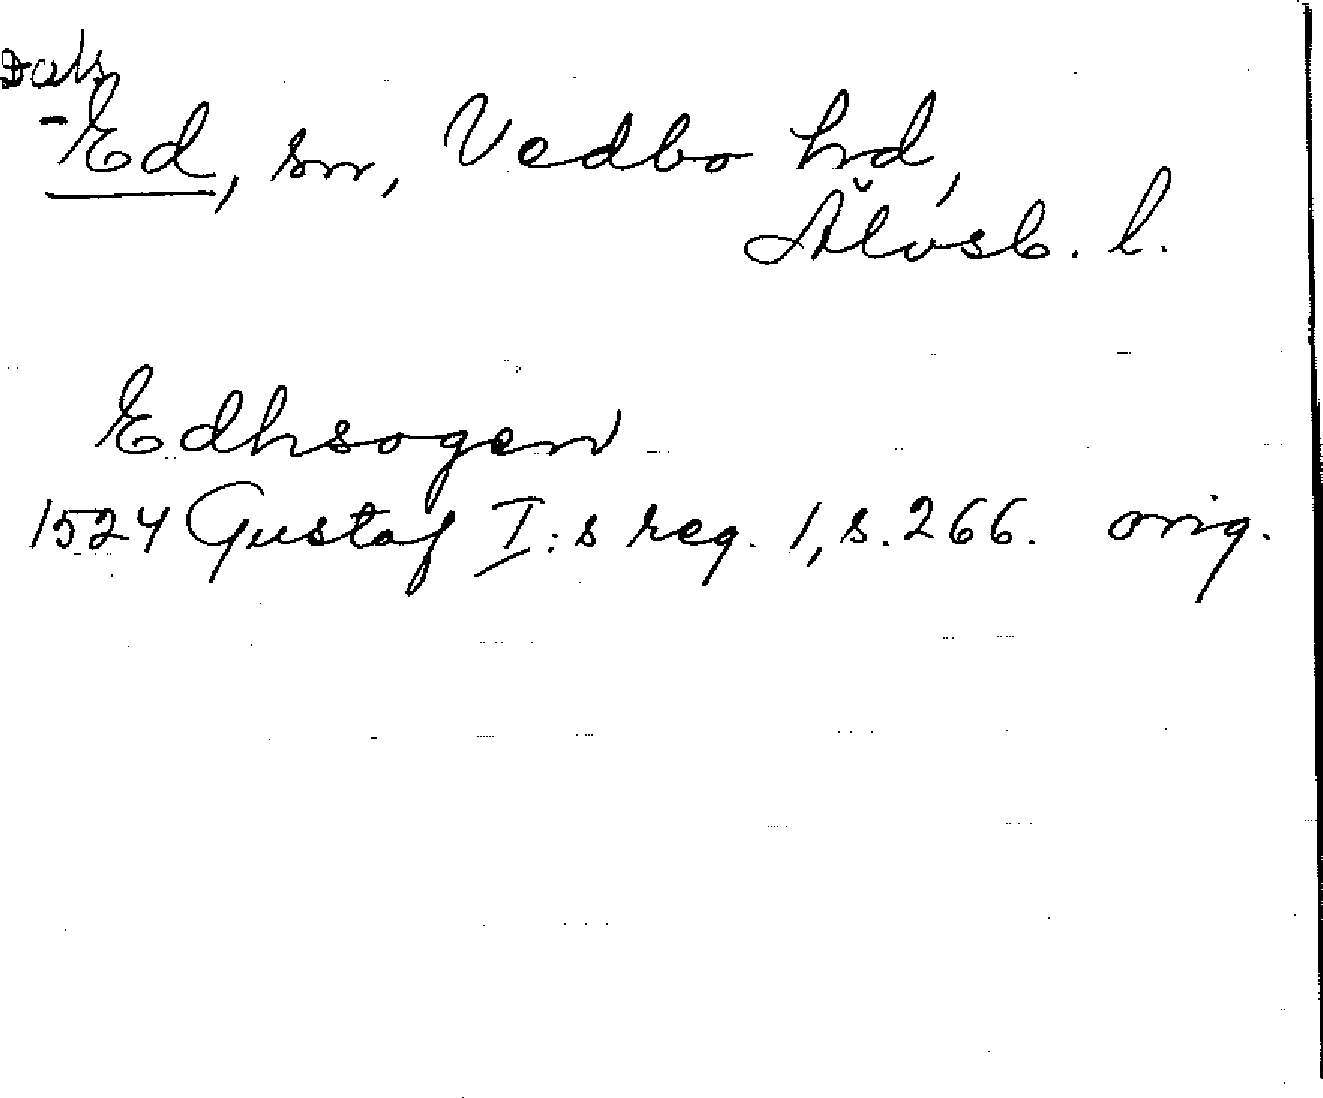 Dals
-Ed, sn, Vedbo hd,
Älvsb. l.
Edhsogen
1524 Gustaf I:s reg. 1, s. 266. orig.